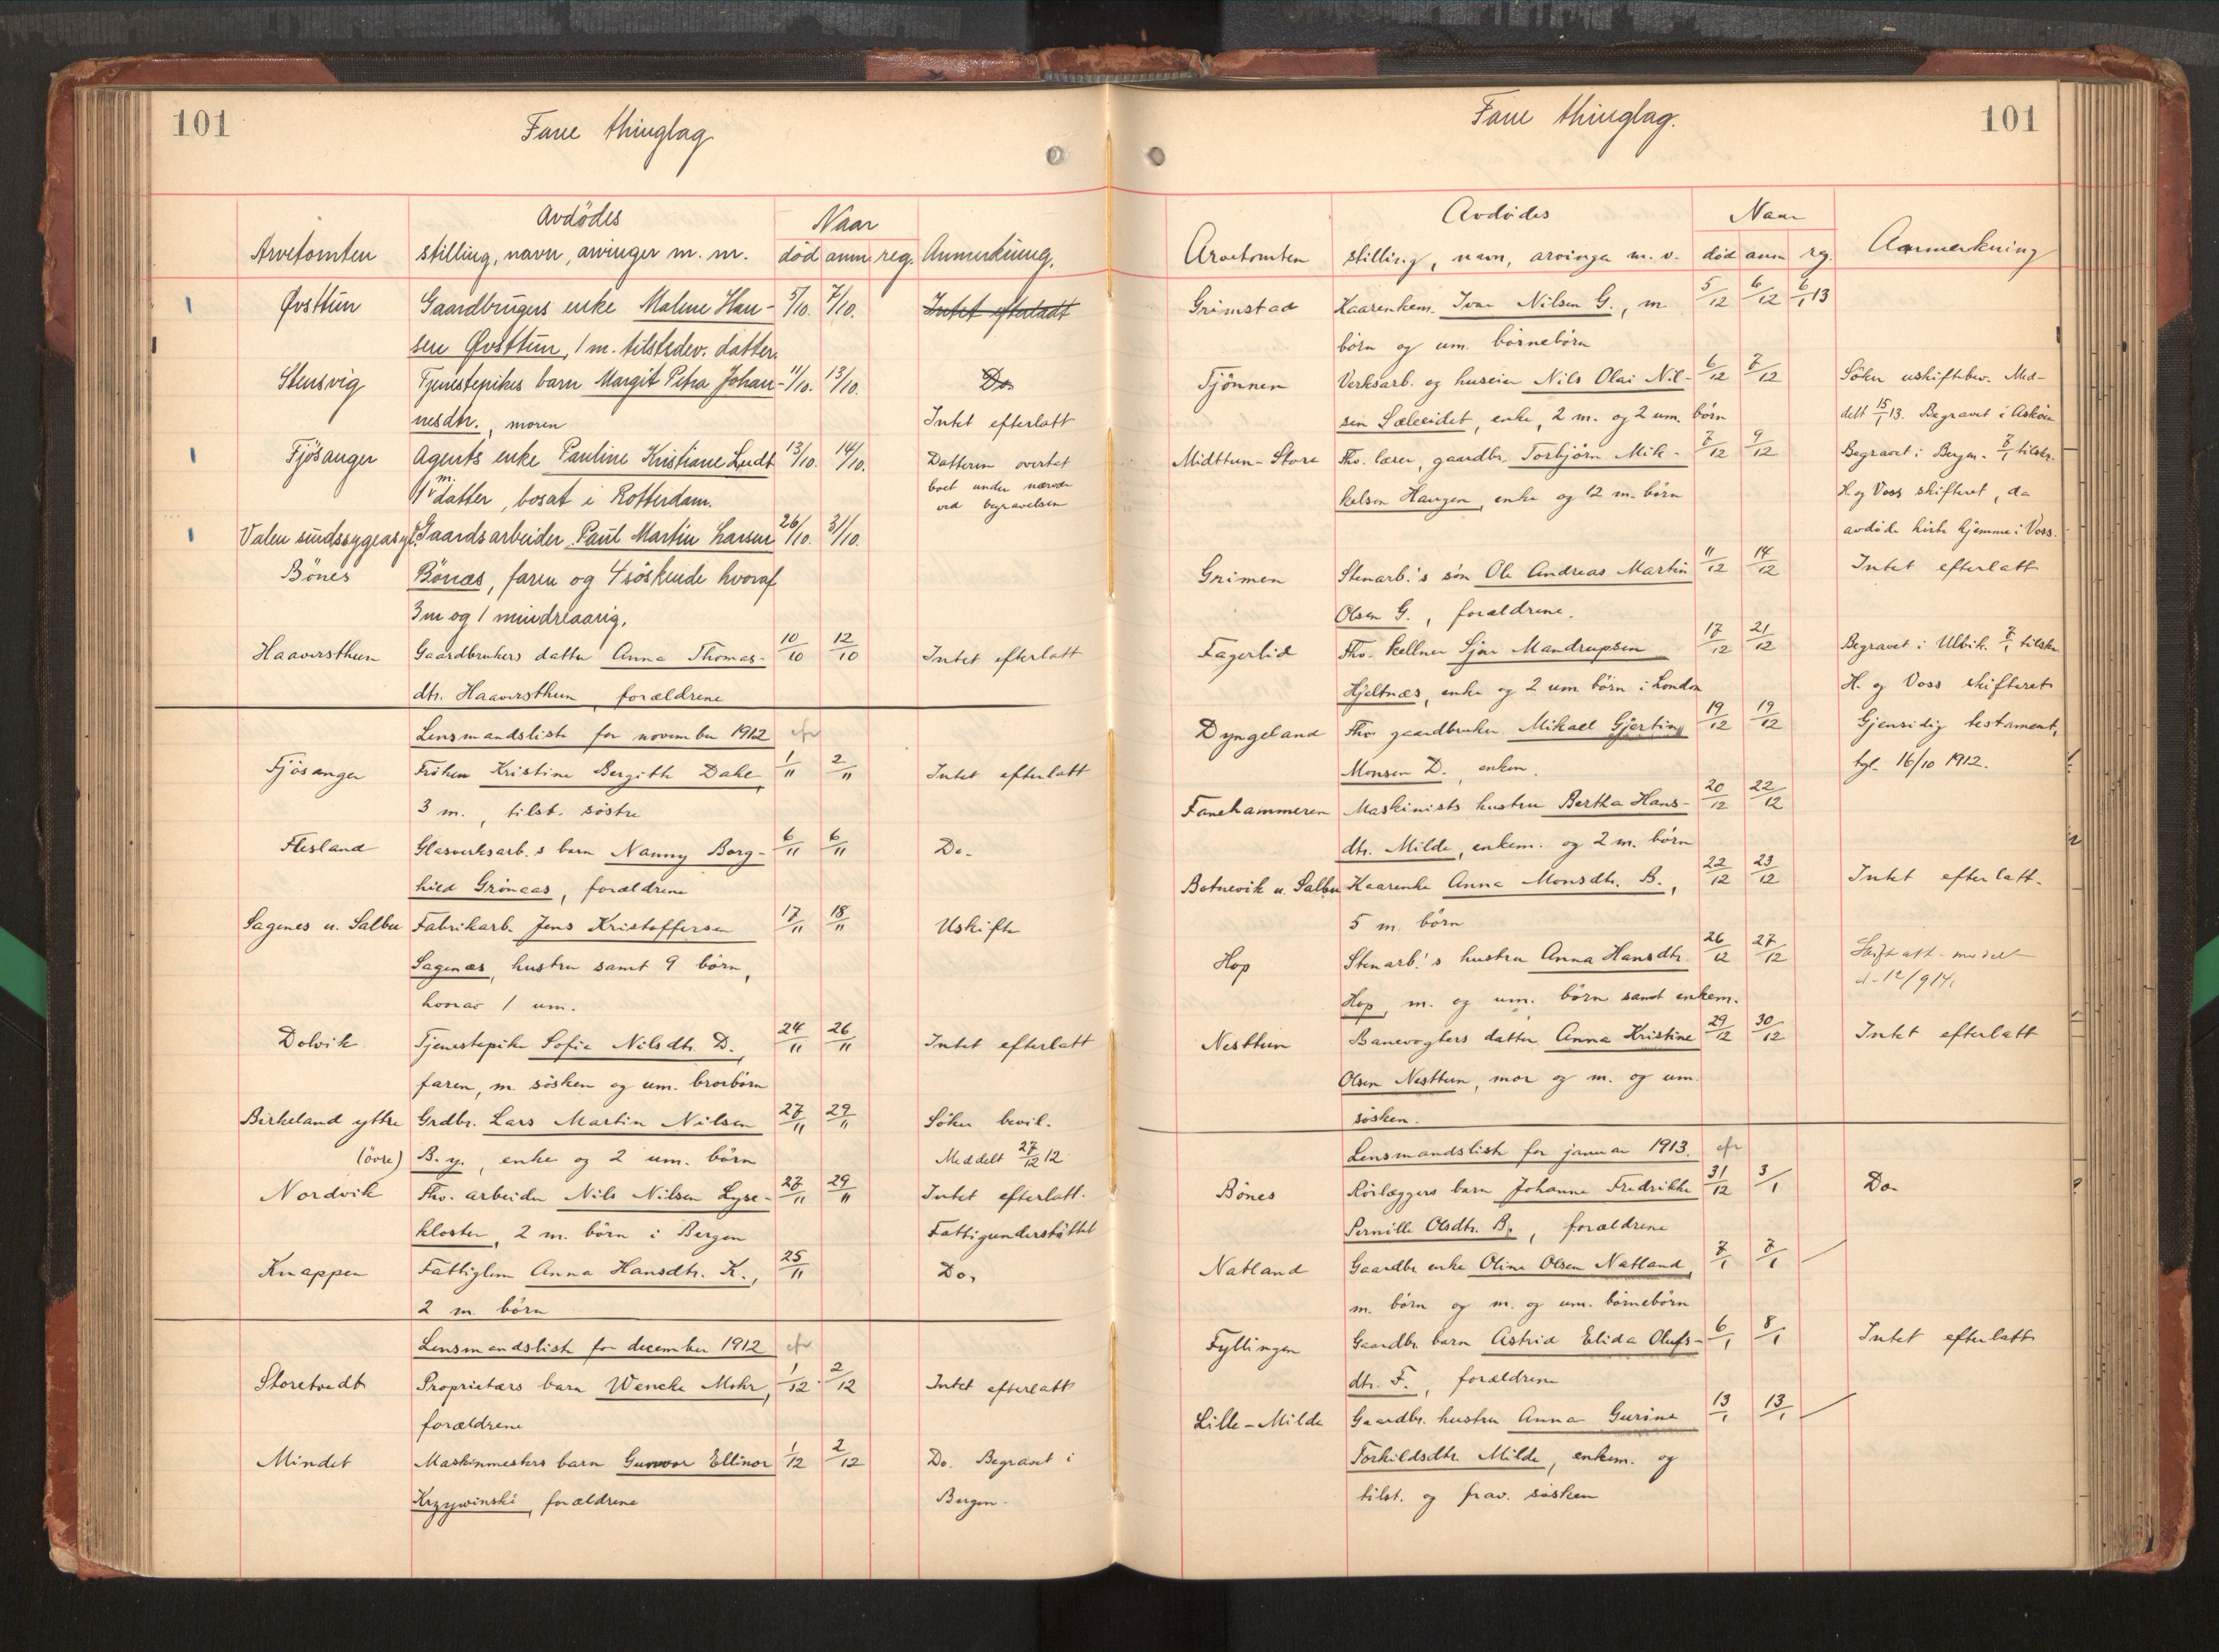 101
Fane thinglag
Avdödes
Naar
Arvetomten stilling, navn, arvinger m. m. död anm. reg. Anmerkning.
Øvsttun Gaardbrugers enke Malene Han- 5/10. 7/10. Intet efterladt
sen Øvsttun, 1 m. tilstedev. datter.
Stensvig Tjenestepikes barn Margit Petra Johan- 11/10. 13/10. Do
nesdtr., moren Intet efterlatt
Fjösanger Agents enke Pauline Kristiane Lundt 13/10. 14/10. Datteren overtat
1 m. datter, bosat i Rotterdam. boet under nærvær
ved begravelsen
Valen sindssygeasyl. Gaardsarbeider Paul Martin Larsen 26/10. 31/10.
Bönes Bönæs, faren og 4 söskende hvoraf
3 m og 1 mindreaarig.
Haaversthun Gaardbrukers datter Anna Thomas- 10/10 12/10 Intet efterlatt
dtr. Haaversthun, forældrene
Lensmandsliste for november 1912
Fjösanger Fröken Kristine Bergitte Dahl, 1/11 2/11 Intet efterlatt
3 m., tilst. söstre
Flesland Glasverksarb.s barn Nanny Borg- 6/11 6/11 Do.
hild Grönaas, forældrene
Sagenes u. Salbu Fabrikarb. Jens Kristoffersen 17/11 18/11 Uskifte
Sagenæs, hustru samt 9 börn,
hvorav 1 um.
Dolvik Tjenestepike Sofie Nilsdtr. D., 24/11 26/11 Intet efterlatt
faren, m. sösken og um. brorbörn
Birkeland yttre Grdbr. Lars Martin Nilsen 27/11 29/11 Söker bevil.
(övre) B. y., enke og 2 um. börn Meddelt 27/12 12
Nordvik Fhv. arbeider Nils Nilsen Lyse- 27/11 29/11 Intet efterlatt.
kloster, 2 m. börn i Bergen Fattigunderstöttet
Knappen Fattiglem Anna Hansdtr. K., 25/11 Do.
2 m. börn
Lensmandsliste for december 1912
Storetvedt Proprietærs barn Wencke Mohr, 1/12 2/12 Intet efterlatt
forældrene
Mindet Maskinmesters barn Gunvor Ellinor 1/12 2/12 Do. Begravet i
Krzywinski, forældrene Bergen.
Fane thinglag.
101
Avdödes
Naar
Arvetomten stilling, navn, arvinger m. v. död anm rg. Anmerkning
Grimstad Kaarenkem. Ivar Nilsen G., m. 5/12 6/12 6/1 13
börn og um. börnebörn
Tjönnen Verksarb. og huseier Nils Olai Nil- 6/12 7/12 Söker uskiftebev. Med-
sen Sæleeidet, enke, 2 m. og 2 um. börn delt 15/1 13. Begravet i Asköen
Midttun-Store Fhv. lærer, gaardbr. Torbjörn Mik- 7/12 9/12 Begravet i Bergen. 7/1 tilskr.
kelsen Haugen, enke og 12 m. börn H. og Voss skifteret, da
avdöde hörte hjemme i Voss.
Grimen Stenarb.'s sön Ole Andreas Martin 11/12 14/12 Intet efterlatt
Olsen G., forældrene.
Fagerlid Fhv. kellner Sjur Mandrupsen 17/12 21/12 Begravet i Ulvik. 7/1 tilskr.
Hjeltnæs, enke og 2 um. börn i London H. og Voss skifteret
Dyngeland Fhv gaardbruker Mikael Gjerting 19/12 19/12 Gjensidig testament,
Monsen D., enken. tgl. 16/10 1912.
Fanehammeren Maskinists hustru Bertha Hans- 20/12 22/12
dtr. Milde, enkem. og 2 m. börn
Botnevik u. Salbu Kaarenke Anna Monsdtr. B., 22/12 23/12 Intet efterlatt.
5 m. börn
Hop Stenarb.'s hustru Anna Hansdtr. 26/12 27/12 Skifteatt. meddelt
Hop, m. og um. börn samt enkem. d. 12/9 14.
Nesttun Banevogters datter Anna Kristine 29/12 30/12 Intet efterlatt
Olsen Nesttun, mor og m. og um.
sösken.
Lensmandsliste for januar 1913.
Bönes Rörlæggers barn Johanne Fredrikke 31/12 3/1 Do.
Pernille Olsdtr. B., forældrene
Natland Gaardbr. enke Oline Olsen Natland, 7/1 7/1
m. börn og m. og um. börnebörn
Fyllingen Gaardbr. barn Astrid Elida Olufs- 6/1 8/1 Intet efterlatt
dtr. F., forældrene
Lille-Milde Gaardbr. hustru Anna Gurine 13/1 13/1
Torkildsdtr. Milde, enkem. og
tilst. og frav. sösken